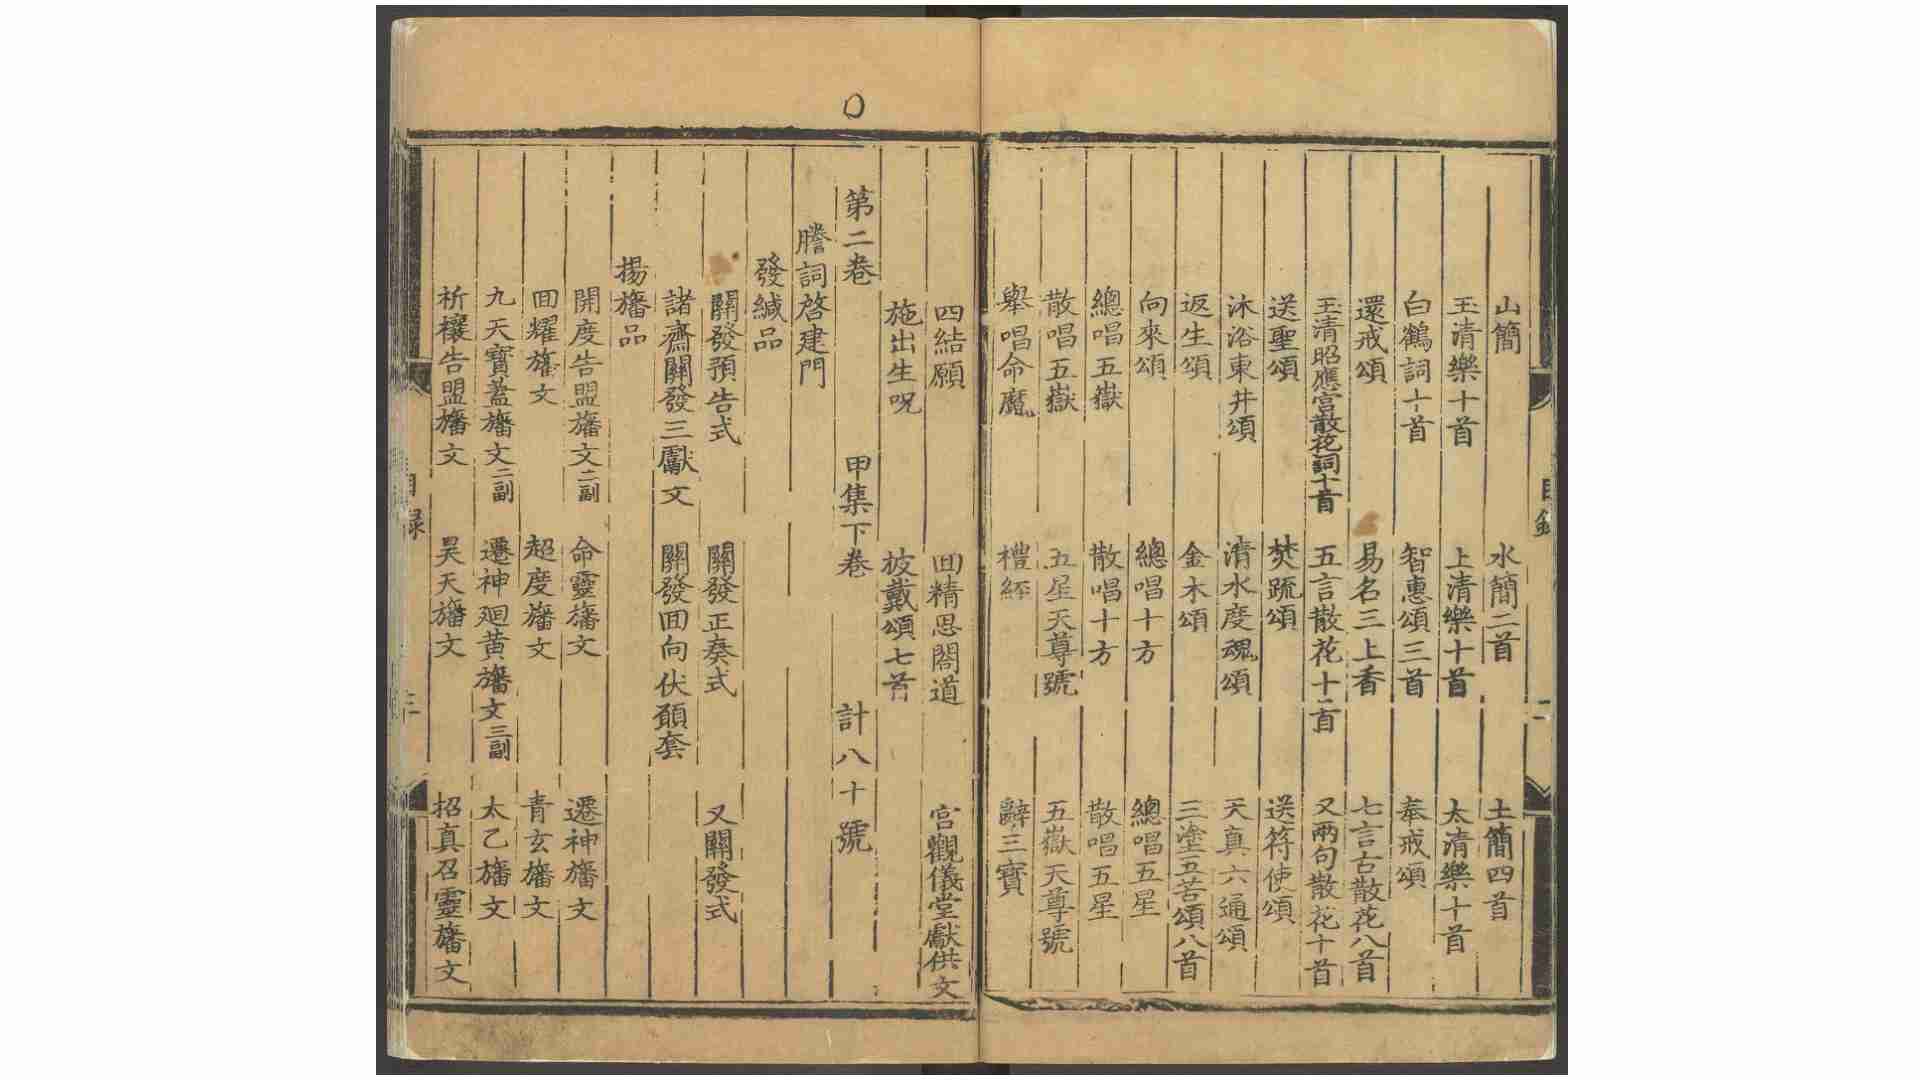 山簡　水簡二首　土簡四首
玉清樂十首　上清樂十首　太清樂十首
白鶴詞十首　智惠頌三首　奉戒頌
還戒頌　易名三上香　七言古散花八首
玉清昭應宮散花詞十首　五言散花十二首　又兩句散花十首
送聖頌　焚䟽頌　送符使頌
沐浴東井頌　清水度魂頌　天真六通頌
返生頌　金木頌　三塗五苦頌八首
向來頌　總唱十方　總唱五星
總唱五嶽　散唱十方　散唱五星
散唱五嶽　五星天尊號　五嶽天尊號
舉唱命魔　禮經　辭三寶
四結願　回精思閤道　宮觀儀堂獻供文
施出生呪　披戴頌七首
第二卷　甲集下卷　計八十號
謄詞啓建門
發緘品
關發預告式　關發正奏式　又關發式
諸齋關發三獻文　關發回向伏願套
揚旛品
開度告盟旛文二副　命靈旛文　遷神旛文
回耀旛文　超度旛文　青玄旛文
九天寶蓋旛文二副　遷神廻黃旛文三副　太乙旛文
祈禳告盟旛文　昊天旛文　招真召靈旛文
目錄　二
目錄　三